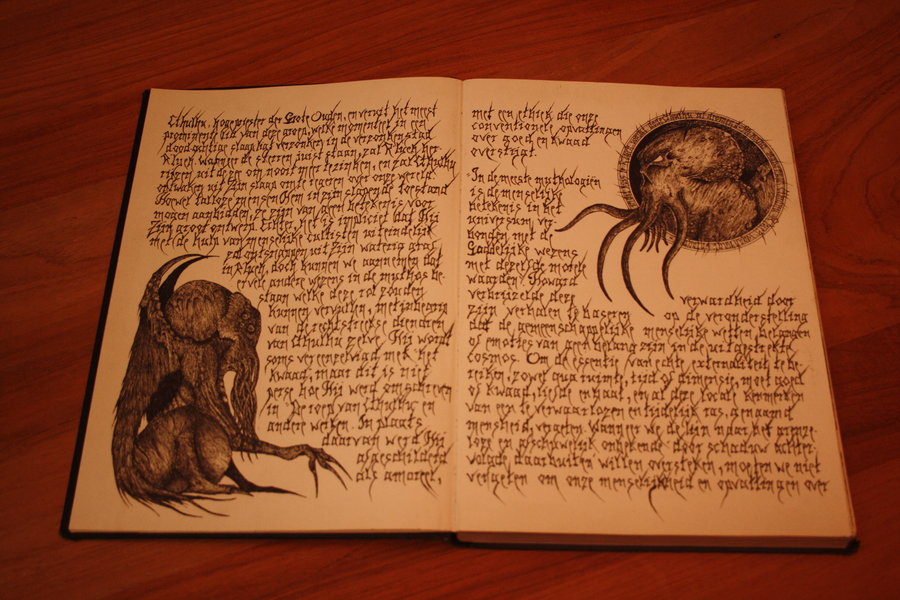 Cthulhu, hogepriester der Grote Ouden, en veruit het meest
prominente lid van deze groep, welke momenteel in een
doodachtige slaap verzonken in de verzonken stad
R'lyeh. Wanneer de sterren juist staan, zal R'lyeh her-
rijzen uit de zee om nooit meer te zinken, en zal Cthulhu
ontwaken uit Zijn slaap om te regeren over onze wereld.
Hoewel talloze mensen Hem in Zijn slapende toestand
mogen aanbidden, ze zijn van geen betekenis voor
Zijn groot ontwerp. Echter, het is impliciet dat Hij
met de hulp van menselijke cultisten uiteindelijk
zal ontsnappen uit Zijn waterig graf
in R'lyeh, doch kunnen we aannemen dat
er vele andere wezens in de mythos be-
staan welke deze rol zouden
kunnen vervullen, met inbegrip
van de rechtstreekse dienaren
van Cthulhu zelve. Hij wordt
soms vereenzelvigd met het
kwaad, maar dit is niet
perse hoe Hij werd omschreven
in 'De roep van Cthulhu' en
andere werken. In plaats
daarvan werd Hij
afgeschilderd
als amoreel,
met een ethiek die onze
conventionele opvattingen
over goed en kwaad
overstijgt.
In de meeste mythologiën
is de menselijke
betekenis in het
universum ver-
bonden met de
Goddelijke wezens
met dezelfde morele
waarden. Howard
verbrijzelde deze verwaardheid door
zijn verhalen te baseren op de veronderstelling
dat de gemeenschappelijke menselijke wetten, belangen
of emoties van geen belang zijn in de uitgestrekte
cosmos. Om de essentie van echte externaliteit te be-
reiken, zowel qua ruimte, tijd of dimensie, moet goed
of kwaad, liefde en haat, en al deze locale kenmerken
van een te verwaarlozen en tijdelijk ras, genaamd
mensheid, vergeten. Wanneer we de lijn naar het grenze-
loze en afschuwelijk onbekende door schaduw achter-
volgde daarbuiten willen oversteken, moeten we niet
vergeten om onze menselijkheid en opvattingen over